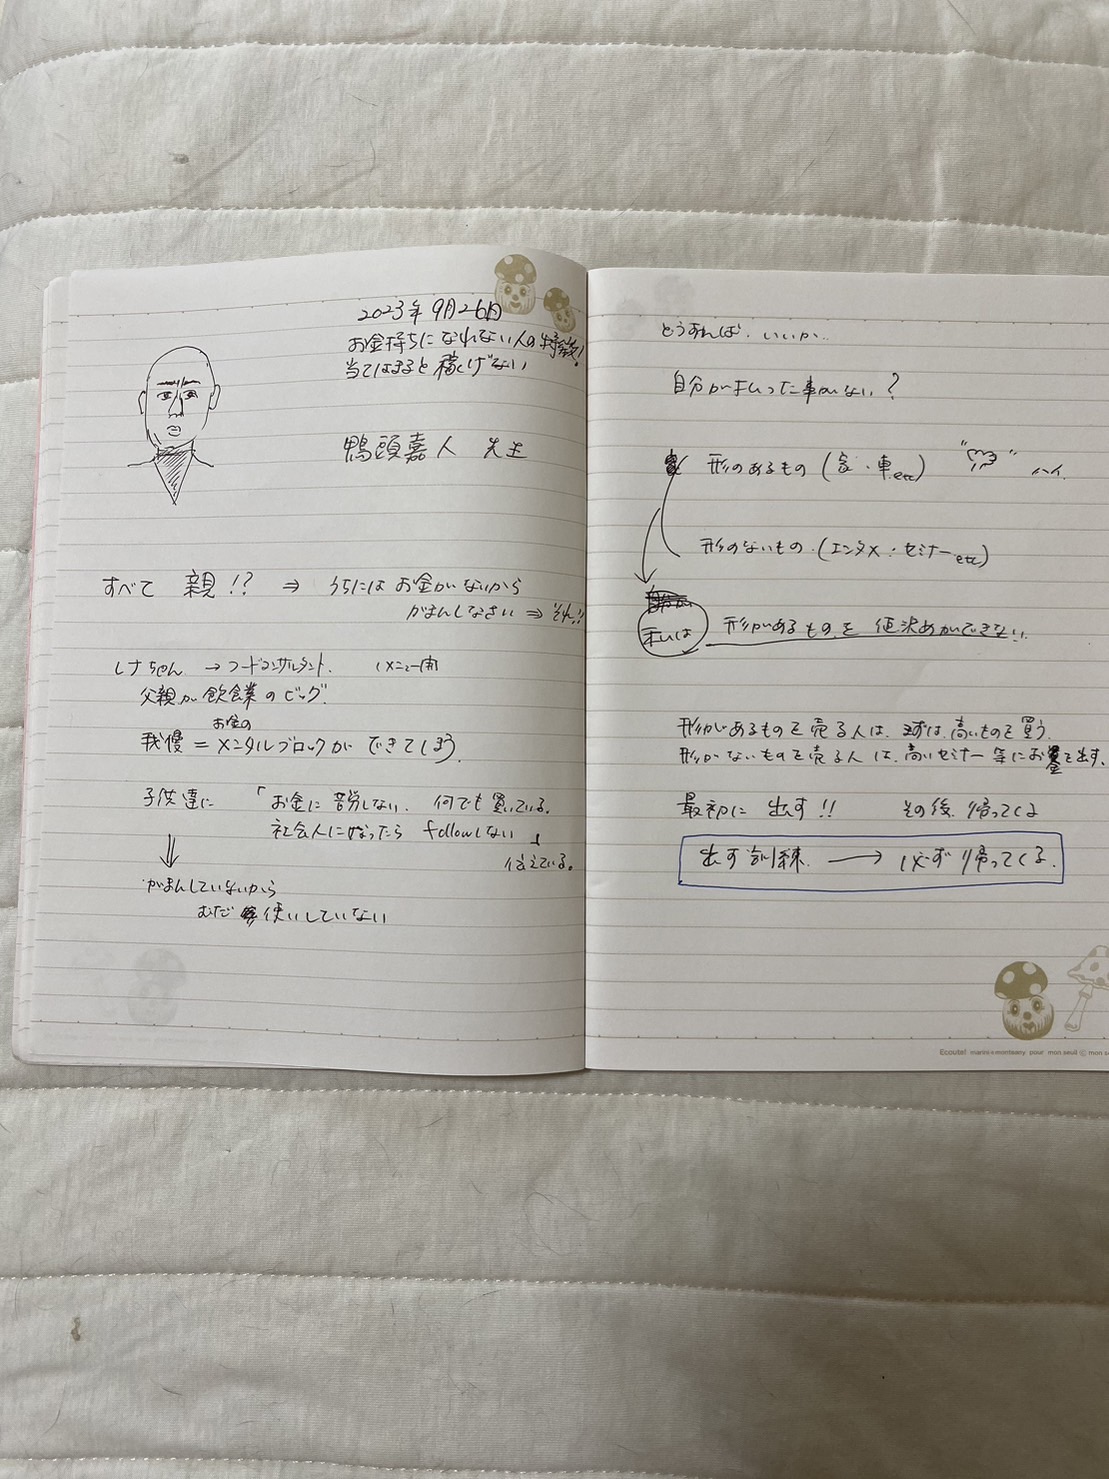 2023年9月26日
お金持ちになれない人の特徴!
当てはまると稼げない
鴨頭嘉人 先生
すべて 親!? ⇒ うちにはお金がないから
がまんしなさい ⇒ それ!!
しなちゃん → フードコンサルタント. (メニュー開
父親が飲食業のビッグ.
お金の
我慢 = メンタルブロックができてしまう.
子供達に 「お金に苦労しない. 何でも買いている.
社会人になったら followしない
伝えている。
がまんしていないから
むだ 使いしていない
どうすればいいか..
自分が払った事がない?
形のあるもの (家・車etc) ハイ.
形のないもの.(エンタメ・セミナーetc)
私は 形があるものを 値決めができない!!
形があるものを売る人は、まずは、高いものを買う.
形がないものを売る人は、高いセミナー等にお金を出す.
最初に 出す!! その後、帰ってくる
出す訓練. → 必ず帰ってくる.
Ecoutel marini*monteany pour mon seuil © mon s